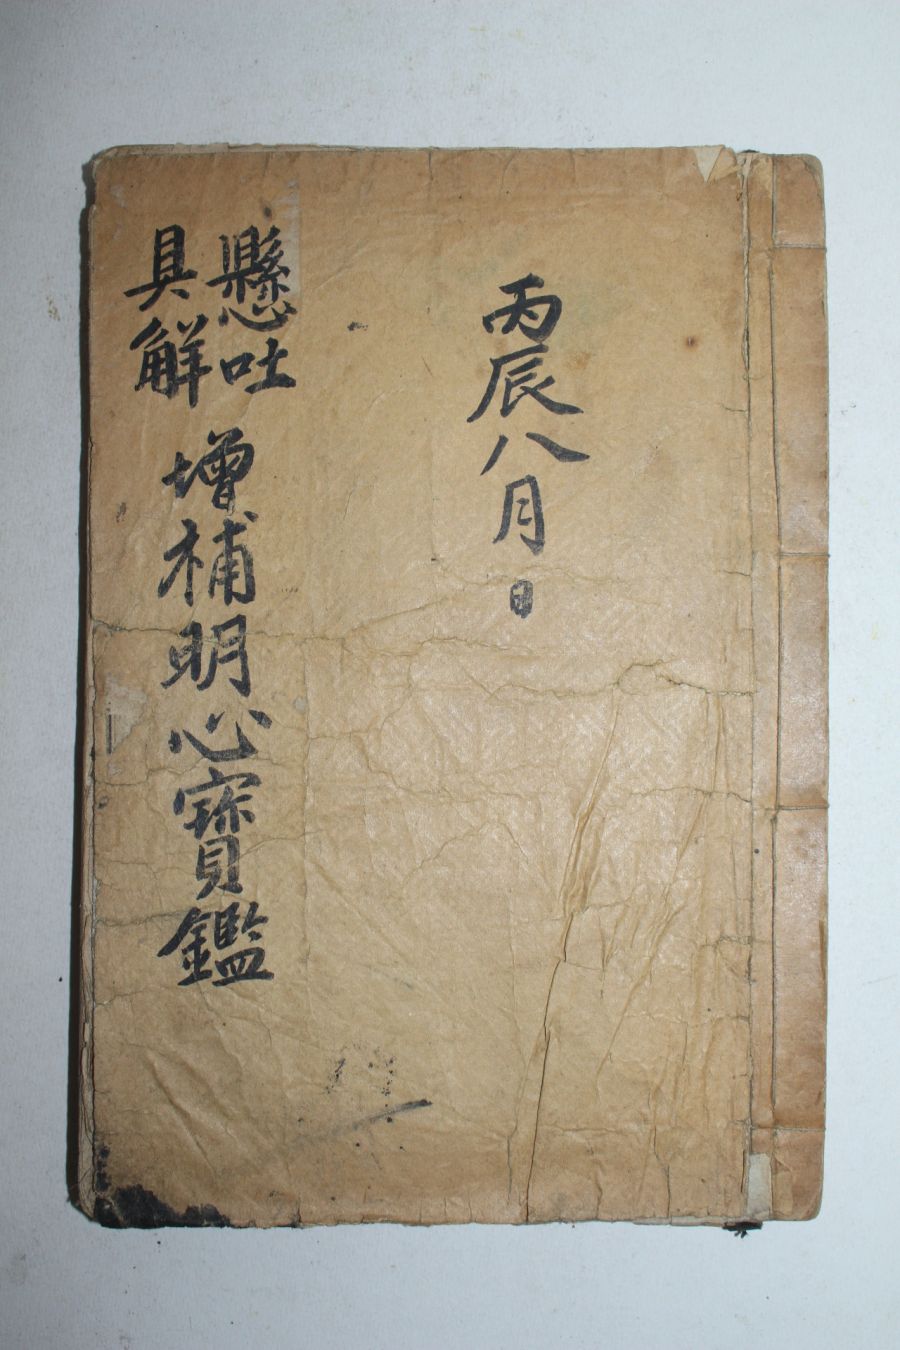 丙辰八月 日
懸吐
具解
增補明心寶鑑